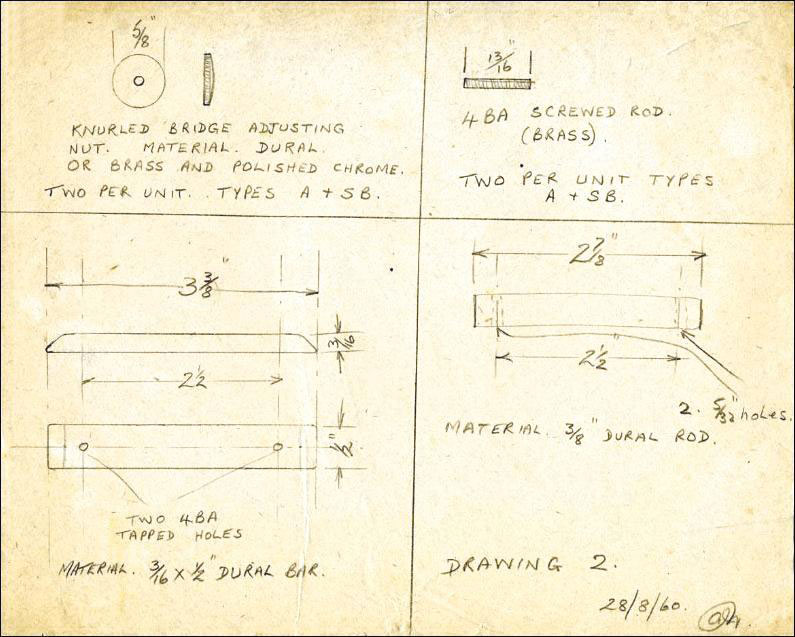 5/8"
KNURLED BRIDGE ADJUSTING
NUT. MATERIAL. DURAL.
OR BRASS AND POLISHED CHROME.
TWO PER UNIT. TYPES A + SB.
13/16"
4BA SCREWED ROD.
(BRASS).
TWO PER UNIT TYPES
A + SB.
3 3/8"
3/16
2 1/2
1/2"
TWO 4BA
TAPPED HOLES
MATERIAL. 3/16 X 1/2" DURAL BAR.
2 7/8"
2 1/2"
2. 5/32" holes.
MATERIAL. 3/8" DURAL ROD.
DRAWING 2.
28/8/60.